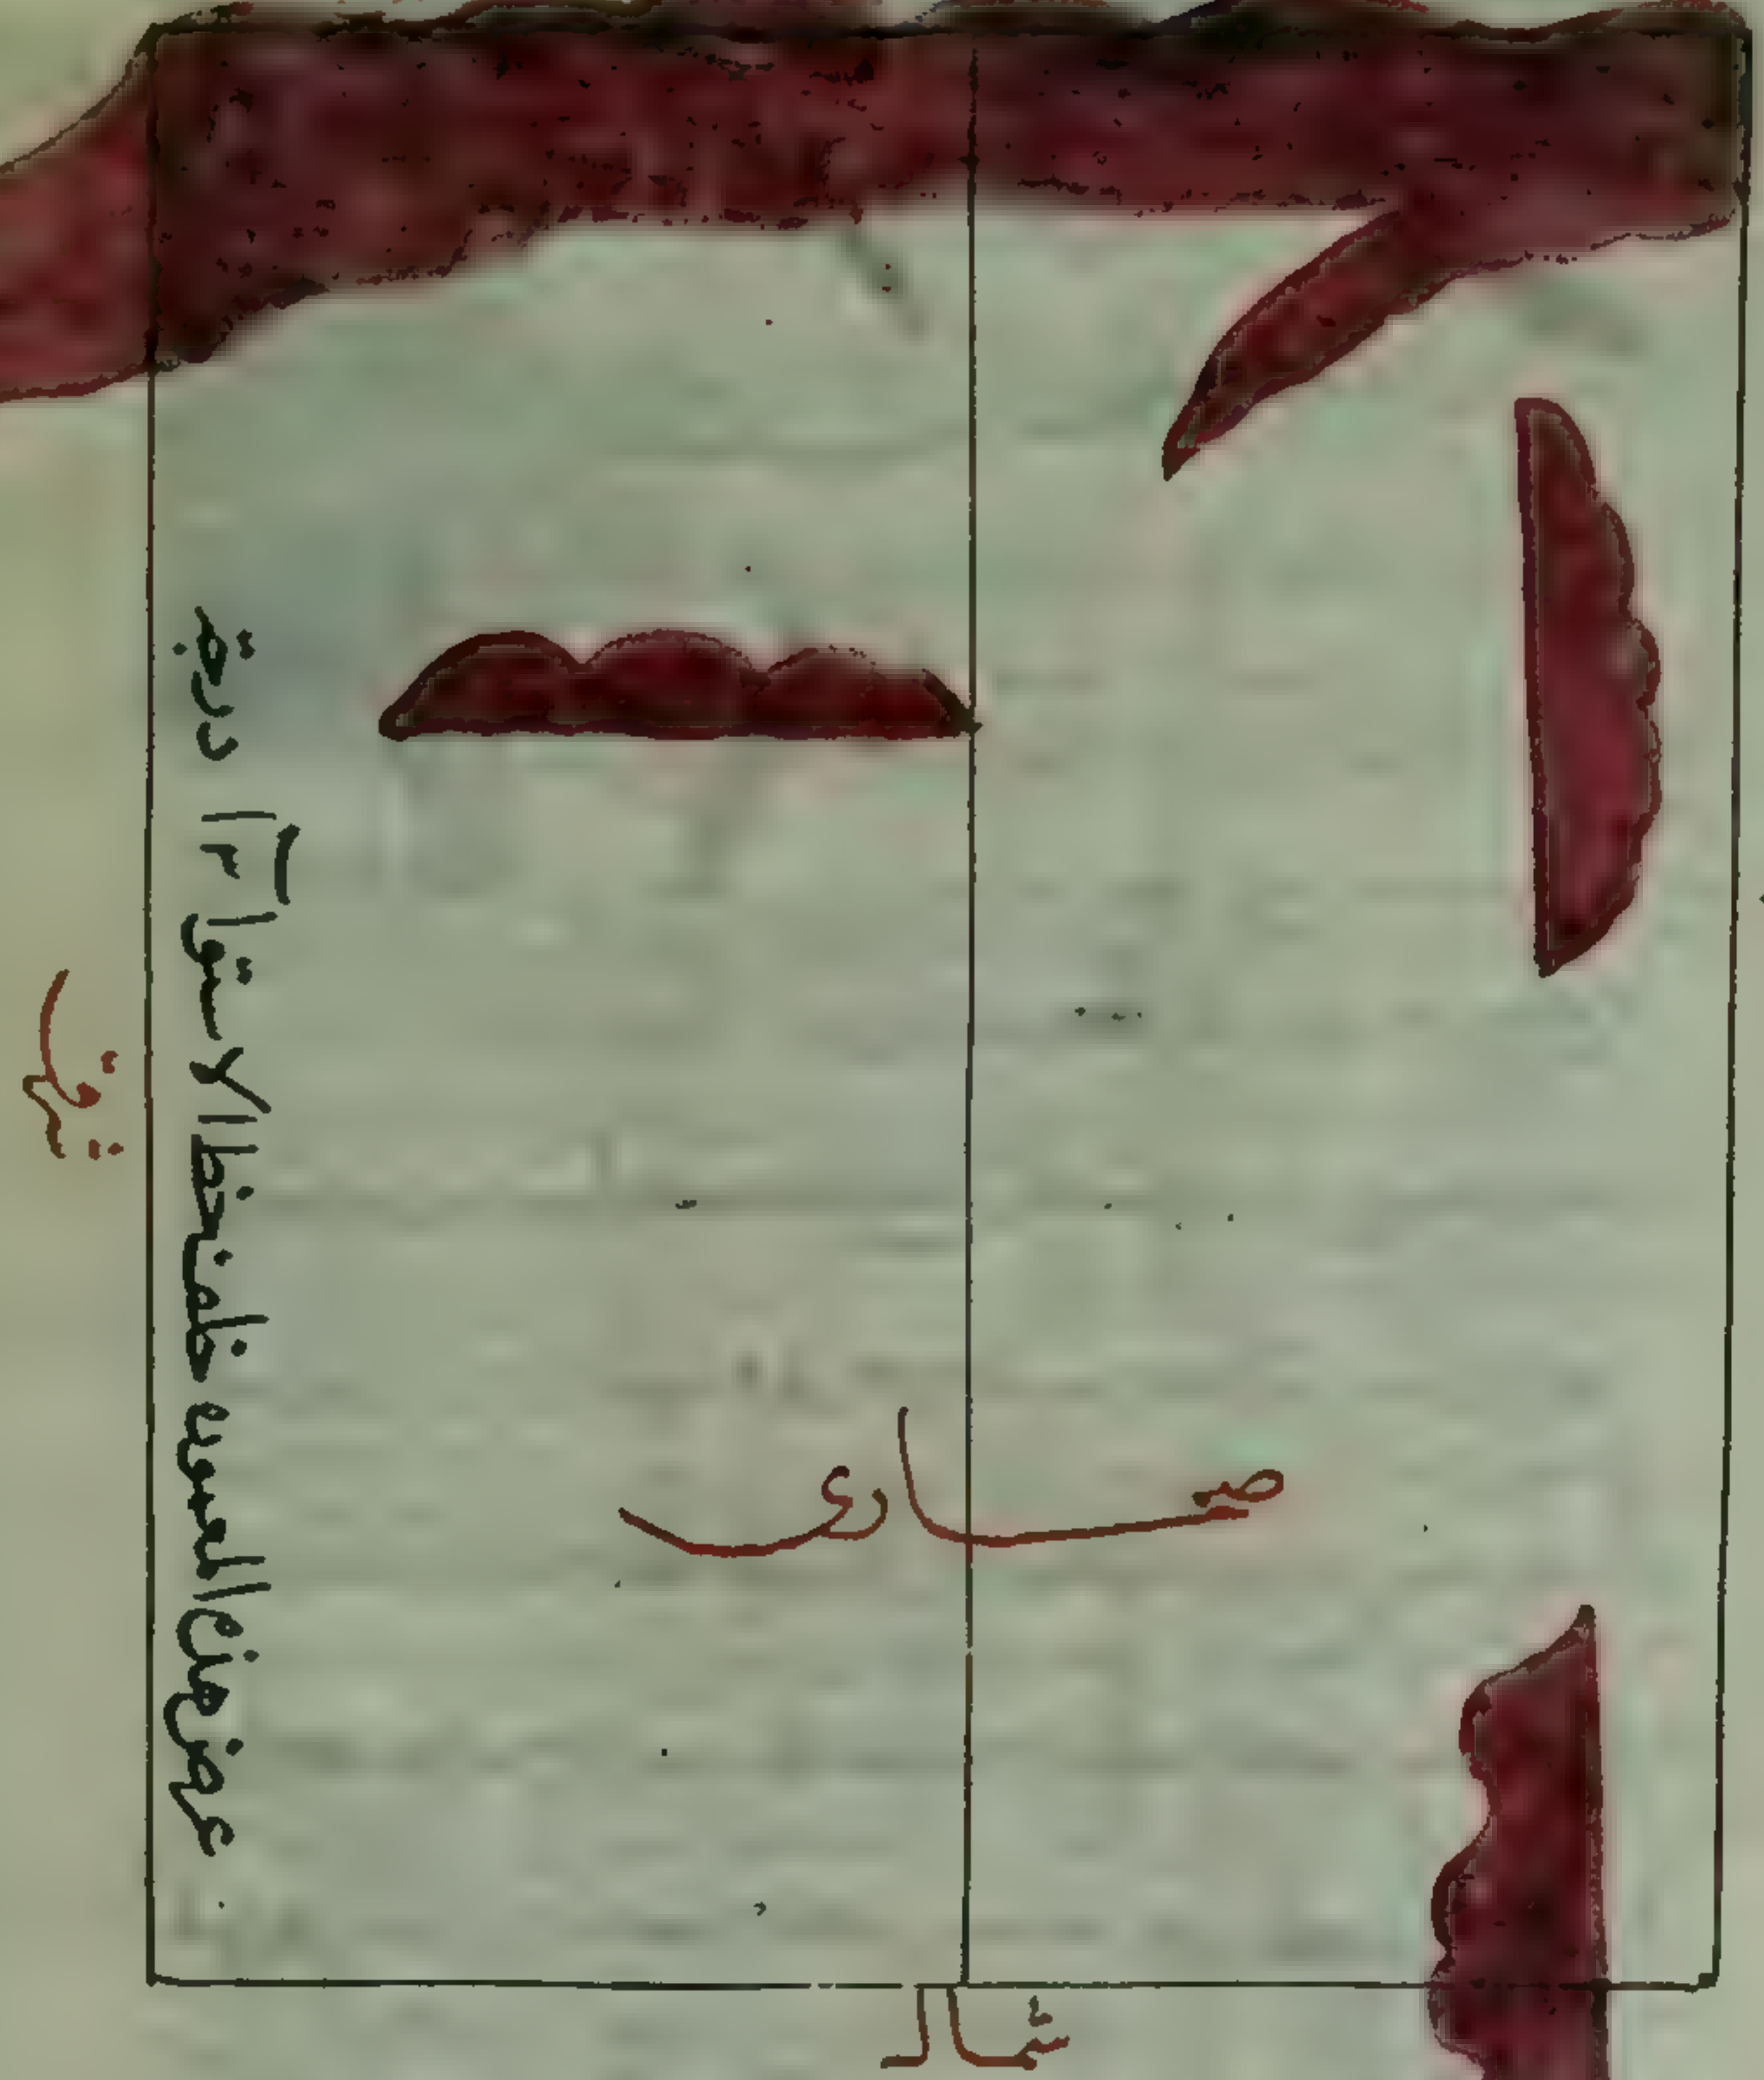 شرق
عرض هذه الصوره خلف خط الاستوا درجة
صحارى
شمال